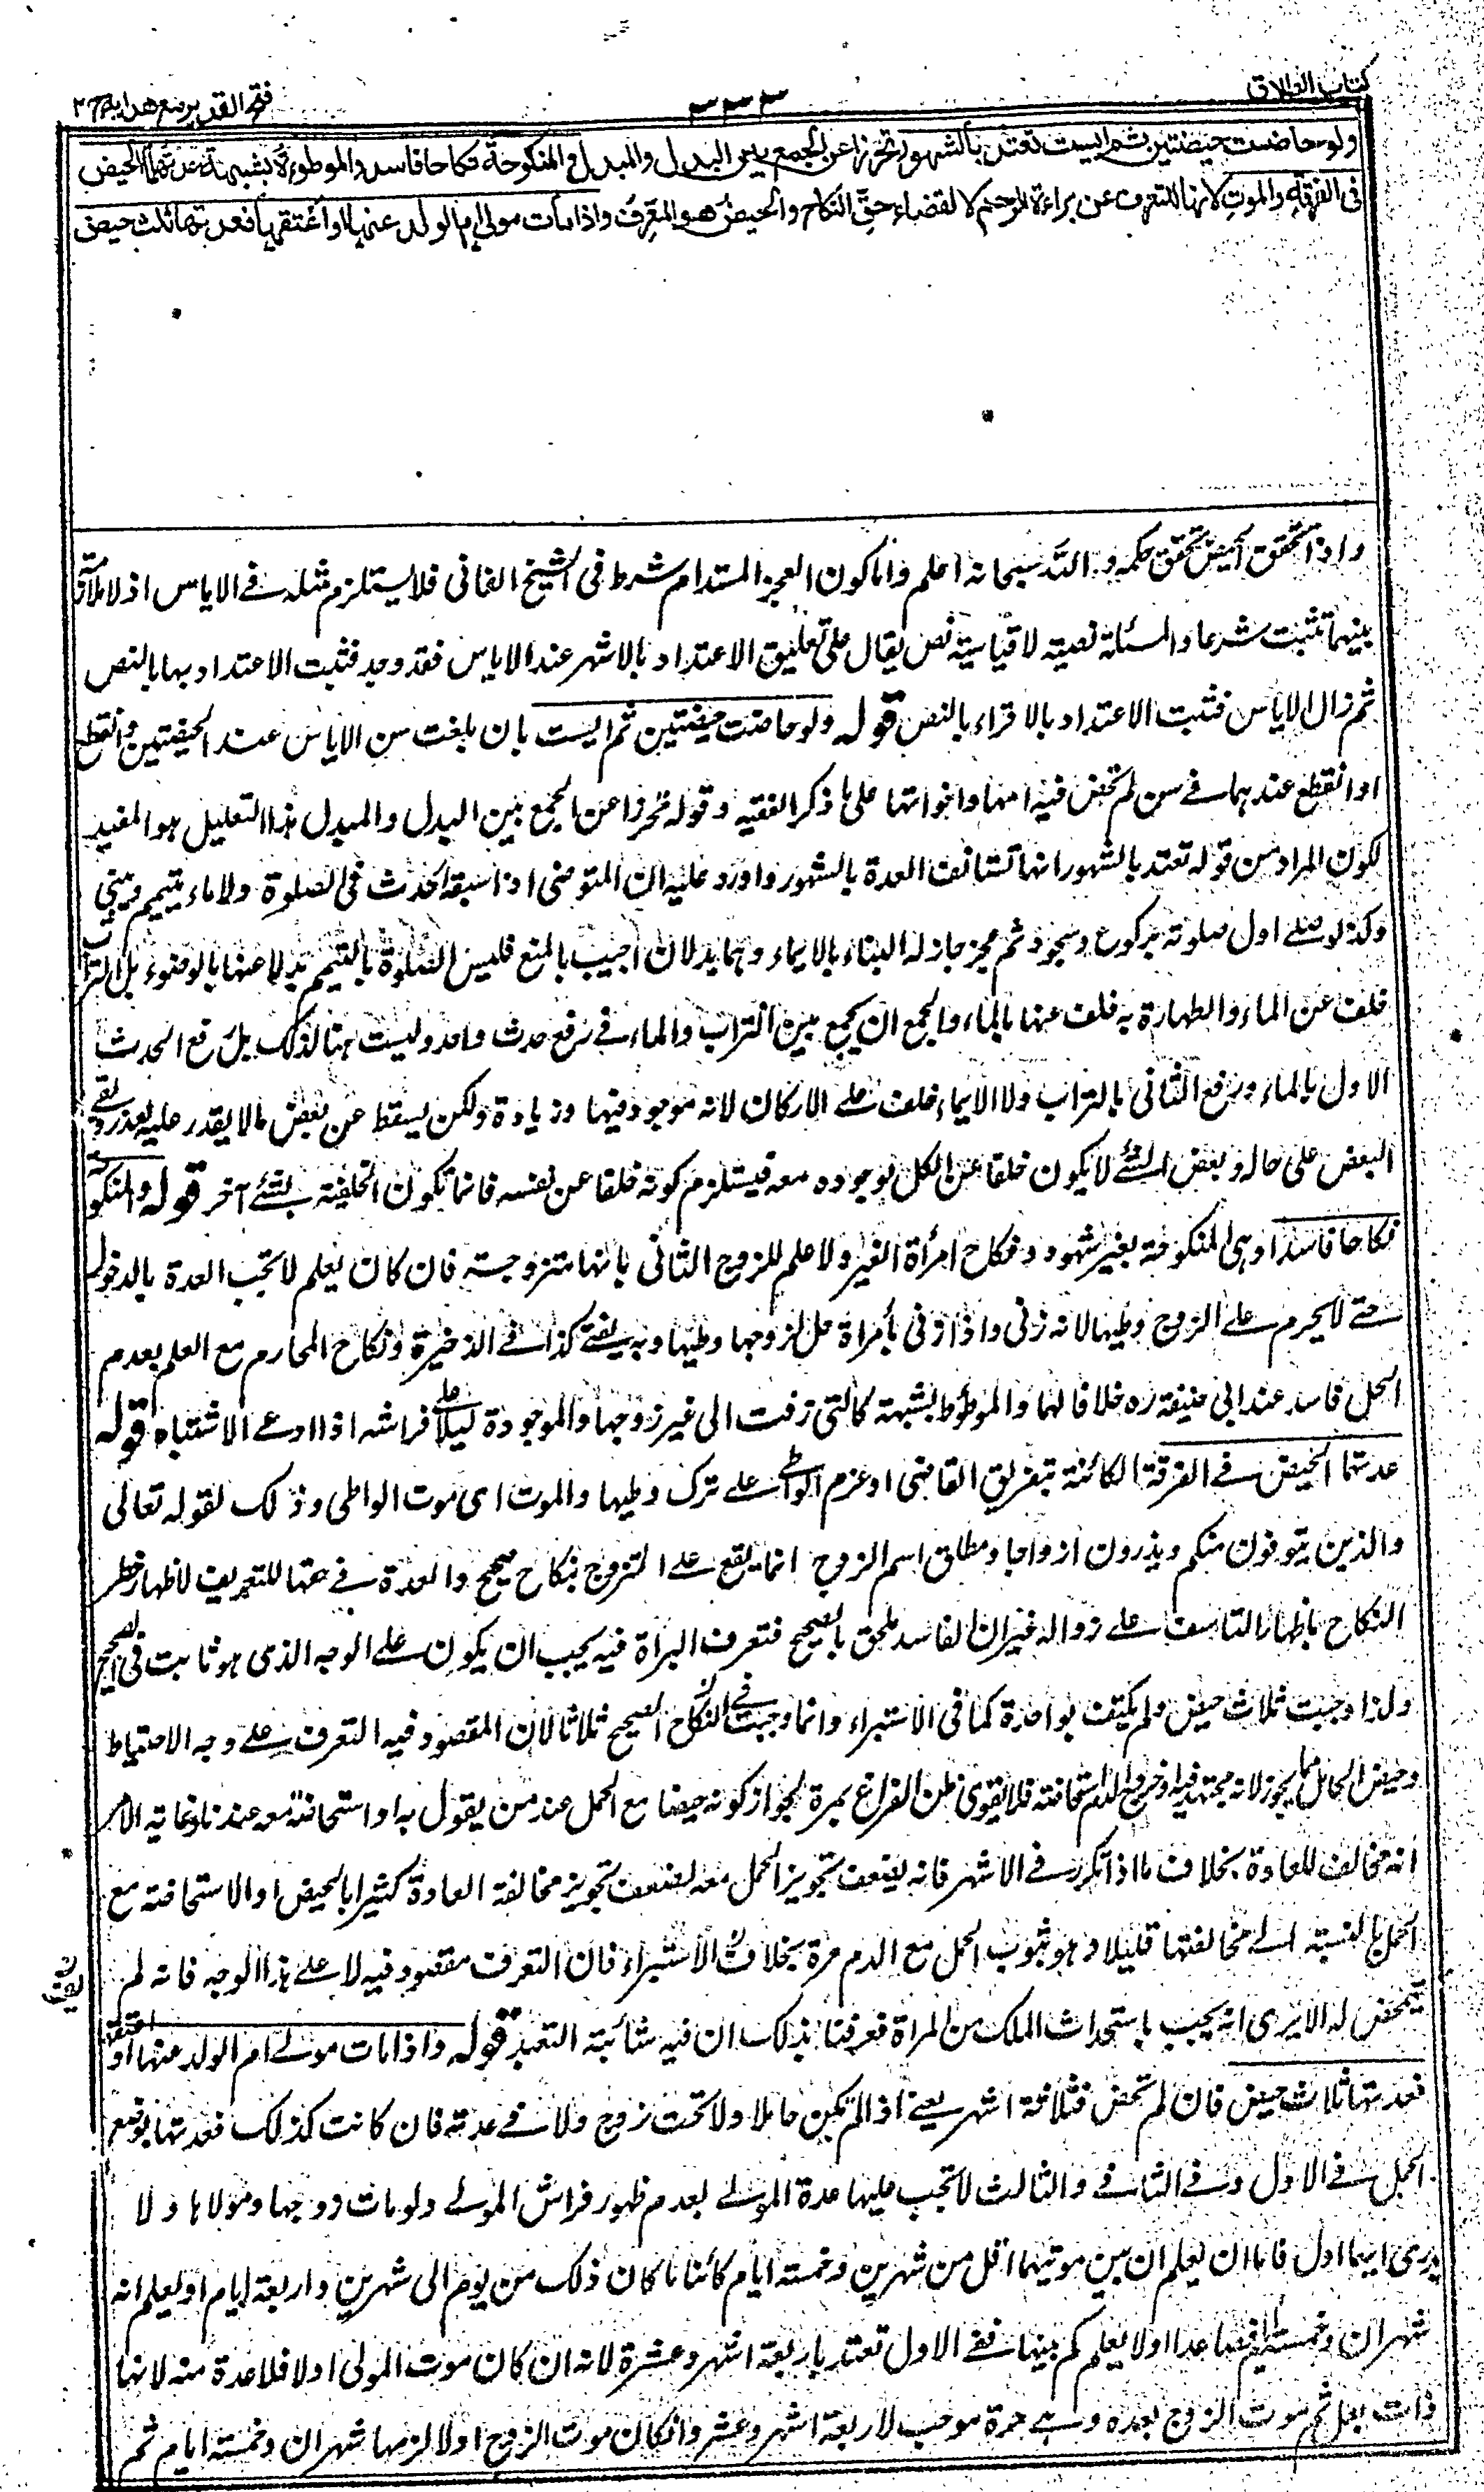 كتاب الطلاق
٣٣٣
فتح القدير مع هدايه ج ٢
ولو حاضت حيضتين ثم ايست تعتد بالشهور تحرزا عن الجمع بين البدل والمبدل والمنكوحة نكاحا فاسدا والموطوءة بشبهة عدتهما الحيض
فى الفرقة والموت لانها للتعرف عن براءة الرحم لا لقضاء حق النكاح والحيض هو المعرف واذا مات مولى ام الولد عنها او اعتقها فعدتها ثلث حيض
واذا تحقق الحيض تحقق حكمه والله سبحانه اعلم واما كون العجز المستدام شرط فى الشيخ الفانى فلا يستلزم مثله فے الاياس اذ لا ملازمة
بينهما تثبت شرعا والمسئلة نصية لا قياسية نص يقال على تعليق الاعتداد بالاشهر عند الاياس فقد وجد فثبت الاعتداد بها بالنص
ثم زال الاياس فثبت الاعتداد بالاقراء بالنص قوله ولو حاضت حيضتين ثم ايست بان بلغت سن الاياس عند الحيضتين وانقطع
او انقطع عندهما فے سن لم تحض فيه امها واخواتها على ما ذكر الفقيه وقوله تحرزا عن الجمع بين البدل والمبدل هذا التعليل هو المفيد
لكون المراد من قوله تعتد بالشهور انها تستانف العدة بالشهور واورد عليه ان المتوضى اذا سبقه الحدث فى الصلوة ولا ماء يتيمم ويبنى
وكذا لو صلے اول صلوته بركوع وسجود ثم عجز جاز له البناء بالايماء وهما بدلان اجيب بالمنع فليس الصلوة بالتيمم بدلا عنها بالوضوء بل التراب
خلف عن الماء والطهارة به خلف عنها بالماء والجمع ان يجمع بين التراب والماء فے رفع حدث واحد وليست هنا كذلك بل رفع الحدث
الاول بالماء ورفع الثانى بالتراب ولا الايماء خلف علے الاركان لانه موجود فيها وزيادة ولكن يسقط عن بعض ما لا يقدر عليه لعذر وبقے
البعض على حاله وبعض الشئے لا يكون خلفا عن الكل لوجوده معه فيستلزم كونه خلفا عن نفسه فانما تكون الخلفية بشئے آخر قوله والمنكوحة
نكاحا فاسدا وهى المنكوحة بغير شهود ونكاح امرأة الغير ولا علم للزوج الثانى بانها متزوجة فان كان يعلم لا تجب العدة بالدخول
حتے لا يحرم علے الزوج وطيها لانه زنى واذا زنى بأمراة حل لزوجها وطيها وبه يفتے كذا فے الذخيرة ونكاح المحارم مع العلم بعدم
الحل فاسد عند ابى حنيفة ره خلافا لهما والموطؤ بشبهة كالتى زفت الى غير زوجها والموجودة ليلا علے فراشه اذا ادعے الاشتباه قوله
عدتهما الحيض فے الفرقة الكائنة بتفريق القاضى او عزم الواطے علے ترك وطيها والموت اى موت الواطى وذلك لقوله تعالى
والذين يتوفون منكم ويذرون ازواجا ومطلق اسم الزوج انما يقع علے المتزوج بنكاح صحيح والعدة فے حقها للتعريف لا لاظهار خطر
النكاح باظهار التاسف علے زواله غير ان الفاسد ملحق بالصحيح فتعرف البراة فيه يجب ان يكون علے الوجه الذى هو ثابت فى الصحيح
ولذا وجبت ثلاث حيض ولم يكتف بواحدة كما فى الاستبراء وانما وجبت فے النكاح الصحيح ثلاثا لان المقصود فيه التعرف علے وجه الاحتياط
وحيض الحامل مما يجوز لانه مجتهد فيه وخروج الدم استحاضة فلا يقوى ظن الفراغ بمرة لجواز كونه حيضا مع الحمل عند من يقول به او استحاضة معه عندنا وغاية الامر
انه مخالف للعادة بخلاف ما اذا تكرر فے الاشهر فانه يضعف تجويز الحمل معه لضعف تجويز مخالفة العادة كثيرا بالحيض او الاستحاضة مع
الحمل بالنسبة الے مخالفتها قليلا وهو ثبوت الحمل مع الدم مرة بخلاف الاستبراء فان التعرف مقصود فيه لا علے هذا الوجه فانه لم
يتمحض له الا يرى انه يجب باستحداث الملك من المراة فعرفنا بذلك ان فيه شائبة التعبد قوله واذا مات مولے ام الولد عنها او اعتقها
فعدتها ثلاث حيض فان لم تحض فثلاثة اشهر يعنے اذا لم تكن حاملا ولا تحت زوج ولا فے عدته فان كانت كذلك فعدتها بوضع
الحمل فے الاول وفے الثانے والثالث لا تجب عليها عدة المولے لعدم ظهور فراش المولے ولو مات زوجها ومولاها ولا
يدرى ايهما اول فاما ان يعلم ان بين موتيهما اقل من شهرين وخمسة ايام كائنا ما كان ذلك من يوم الى شهرين واربعة ايام او يعلم انه
شهران وخمسة ايام فصاعدا او لا يعلم كم بينهما ففے الاول تعتد باربعة اشهر وعشرة لانه ان كان موت المولى اولا فلا عدة منه لانها
ذات بعل ثم موت الزوج بعده وهے حرة موجب لاربعة اشهر وعشر وان كان موت الزوج اولا لزمها شهران وخمسة ايام ثم